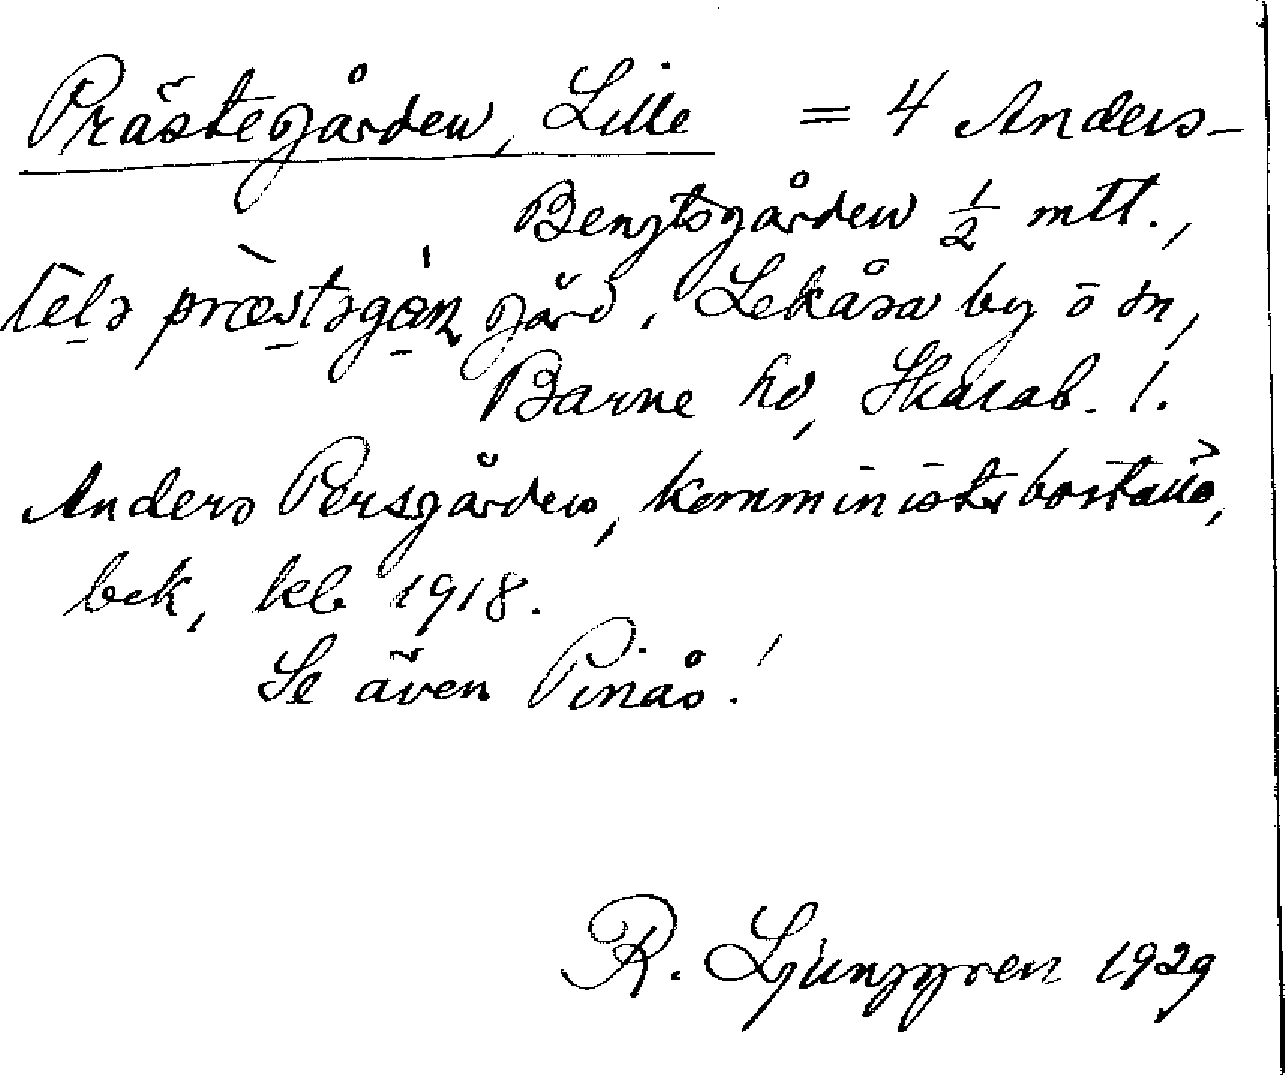 Prästegården, Lille = 4 Anders-
Bengtsgården ½ mtt.,
gård, Lekåsa by o sn,
Barne hd, Skarab. l.
Anders Persgården, komministerboställe,
bek, kb 1918.
Se även Pinås!
R. Ljunggren 1929